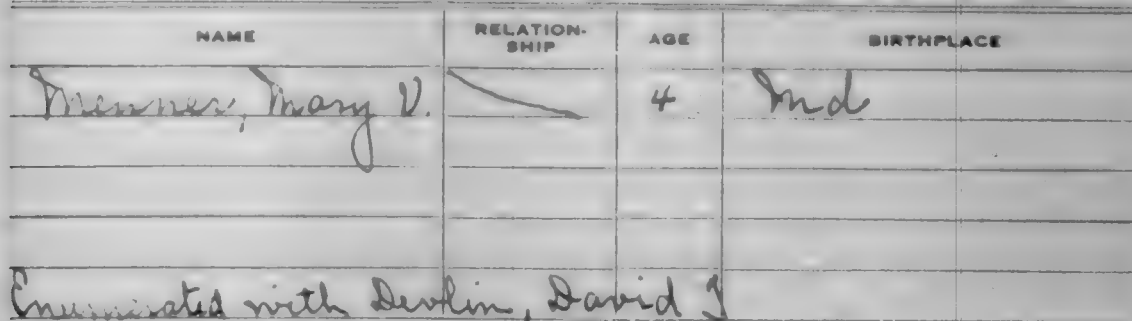 NAME RELATION-SHIP AGE BIRTHPLACE
Menner, Mary V. 4 Md
Enumerated with Devlin, David J